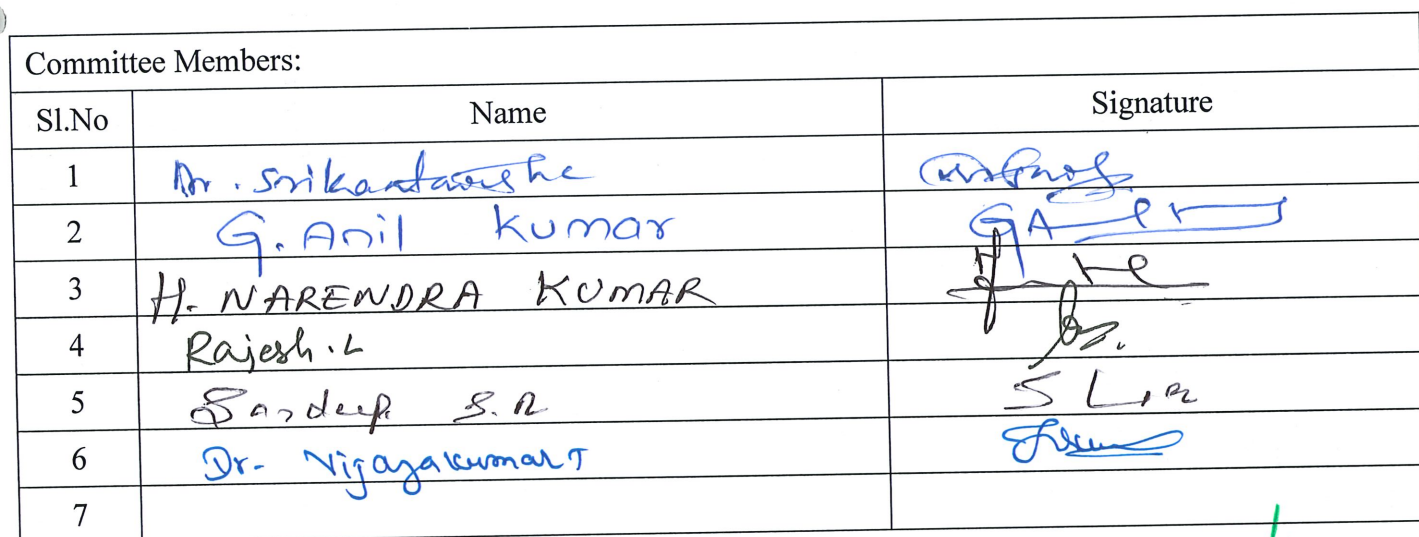 Committee Members:
Sl.No Name Signature
1 Dr. Srikantaswamy
2 G. Anil Kumar
3 H. NARENDRA KUMAR
4 Rajesh. L
5 Sandeep S.R
6 Dr- Vijayakumar T
7